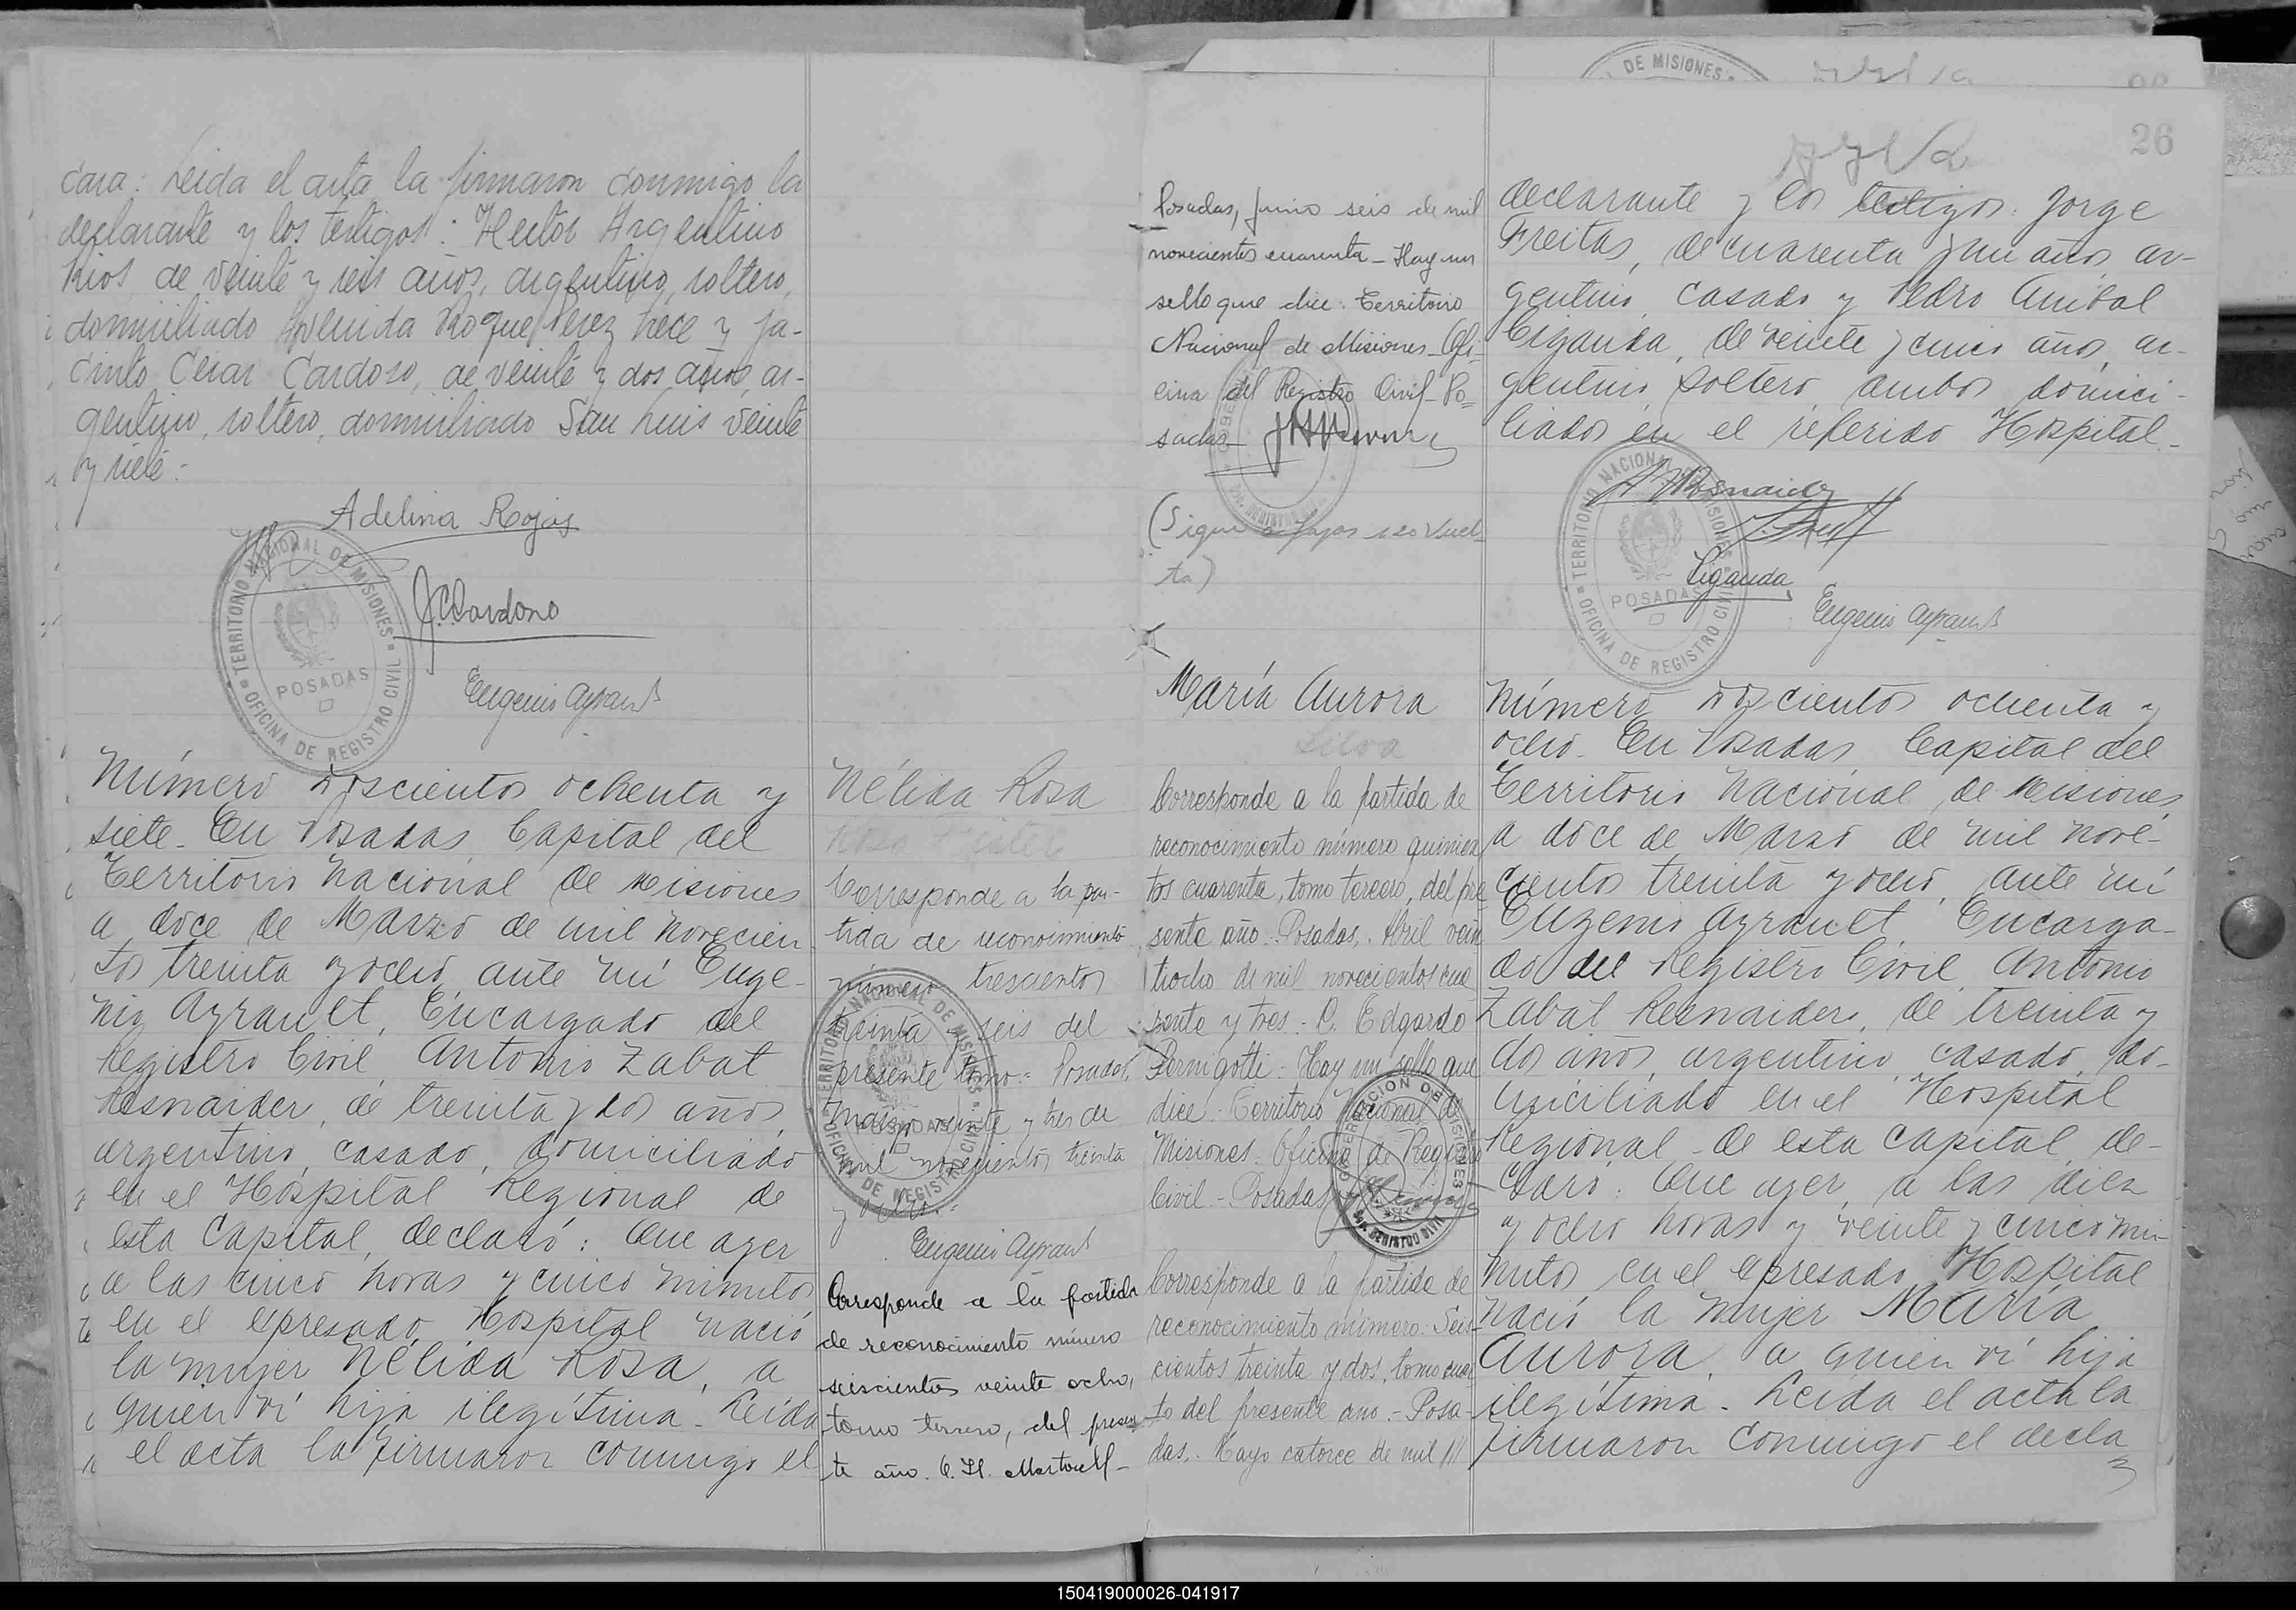 cara: Leida el acta la firmaron conmigo la
declarante y los testigos: Hector Argentino
Rios, de veinte y seis años, argentino, soltero,
domiciliado Avenida Roque Perez trece y Ja-
cinto Cesar Cardoso, de veinte y dos años, ar-
gentino, soltero, domiciliado San Luis veinte
y siete:
Adelina Rojas
J.C. Cardoso
Eugenio Ayrault
TERRITORIO NACIONAL DE MISIONES
POSADAS
OFICINA DE REGISTRO CIVIL
Número doscientos ochenta y
siete. En Posadas, Capital del
Territorio Nacional de Misiones
a doce de Marzo de mil novecien
tos treinta y ocho, ante mí Euge-
nio Ayrault, Encargado del
Registro Civil, Antonio Zabat
Resnaider, de treinta y dos años,
argentino, casado, domiciliado
en el Hospital Regional de
esta Capital, declaró: Que ayer
a las cinco horas y cinco minutos
en el expresado Hospital nació
la mujer Nélida Rosa, a
quien vi hija ilegítima. Leida
el acta la firmaron conmigo el
Nélida Rosa
Corresponde a la par-
tida de reconocimiento
número trescientos
treinta y seis del
presente tomo: Posadas,
Marzo veinte y tres de
mil novecientos treinta
y ocho.
Eugenio Ayrault
TERRITORIO NACIONAL DE MISIONES
POSADAS
OFICINA DE REGISTRO CIVIL
Corresponde a la partida
de reconocimiento número
seiscientos veinte ocho,
tomo tercero, del presen
te año. C. H. Martorell-
Posadas, Junio seis de mil
novecientos cuarenta - Hay un
sello que dice: Territorio
Nacional de Misiones - Ofi-
cina del Registro Civil - Po-
sadas -
(Sigue a fojas 120 vuel
ta)
María Aurora
Silva
Corresponde a la partida de
reconocimiento número quinien
tos cuarenta, tomo tercero, del pre
sente año. Posadas, Abril vein
tiocho de mil novecientos cua
renta y tres.- C. Edgardo
Pernigotti. Hay un sello que
dice: Territorio Nacional de
Misiones. Oficina de Registro
Civil - Posadas
Corresponde a la partida de
reconocimiento número: Seis-
cientos treinta y dos, tomo cuar
to del presente año.- Posa-
das. Mayo catorce de mil
DE MISIONES
26
declarante y los testigos: Jorge
Freitas, de cuarenta y un años, ar-
gentino, casado y Pedro Anibal
Ciganda, de veinte y cinco años, ar-
gentino, soltero, ambos domici-
liados en el referido Hospital.
Ciganda
Eugenio Ayrault
TERRITORIO NACIONAL DE MISIONES
POSADAS
OFICINA DE REGISTRO CIVIL
Número doscientos ochenta y
ocho. En Posadas, Capital del
Territorio Nacional de Misiones,
a doce de Marzo de mil nove-
cientos treinta y ocho, ante mí
Eugenio Ayrault, Encarga-
do del Registro Civil, Antonio
Zabat Resnaider, de treinta y
dos años, argentino, casado, do-
miciliado en el Hospital
Regional de esta Capital, de-
claró: Que ayer, a las diez
y ocho horas y veinte y cinco mi-
nutos en el expresado Hospital
nació la mujer María
Aurora, a quien vi hija
ilegítima. Leida el acta la
firmaron conmigo el decla
150419000026-041917